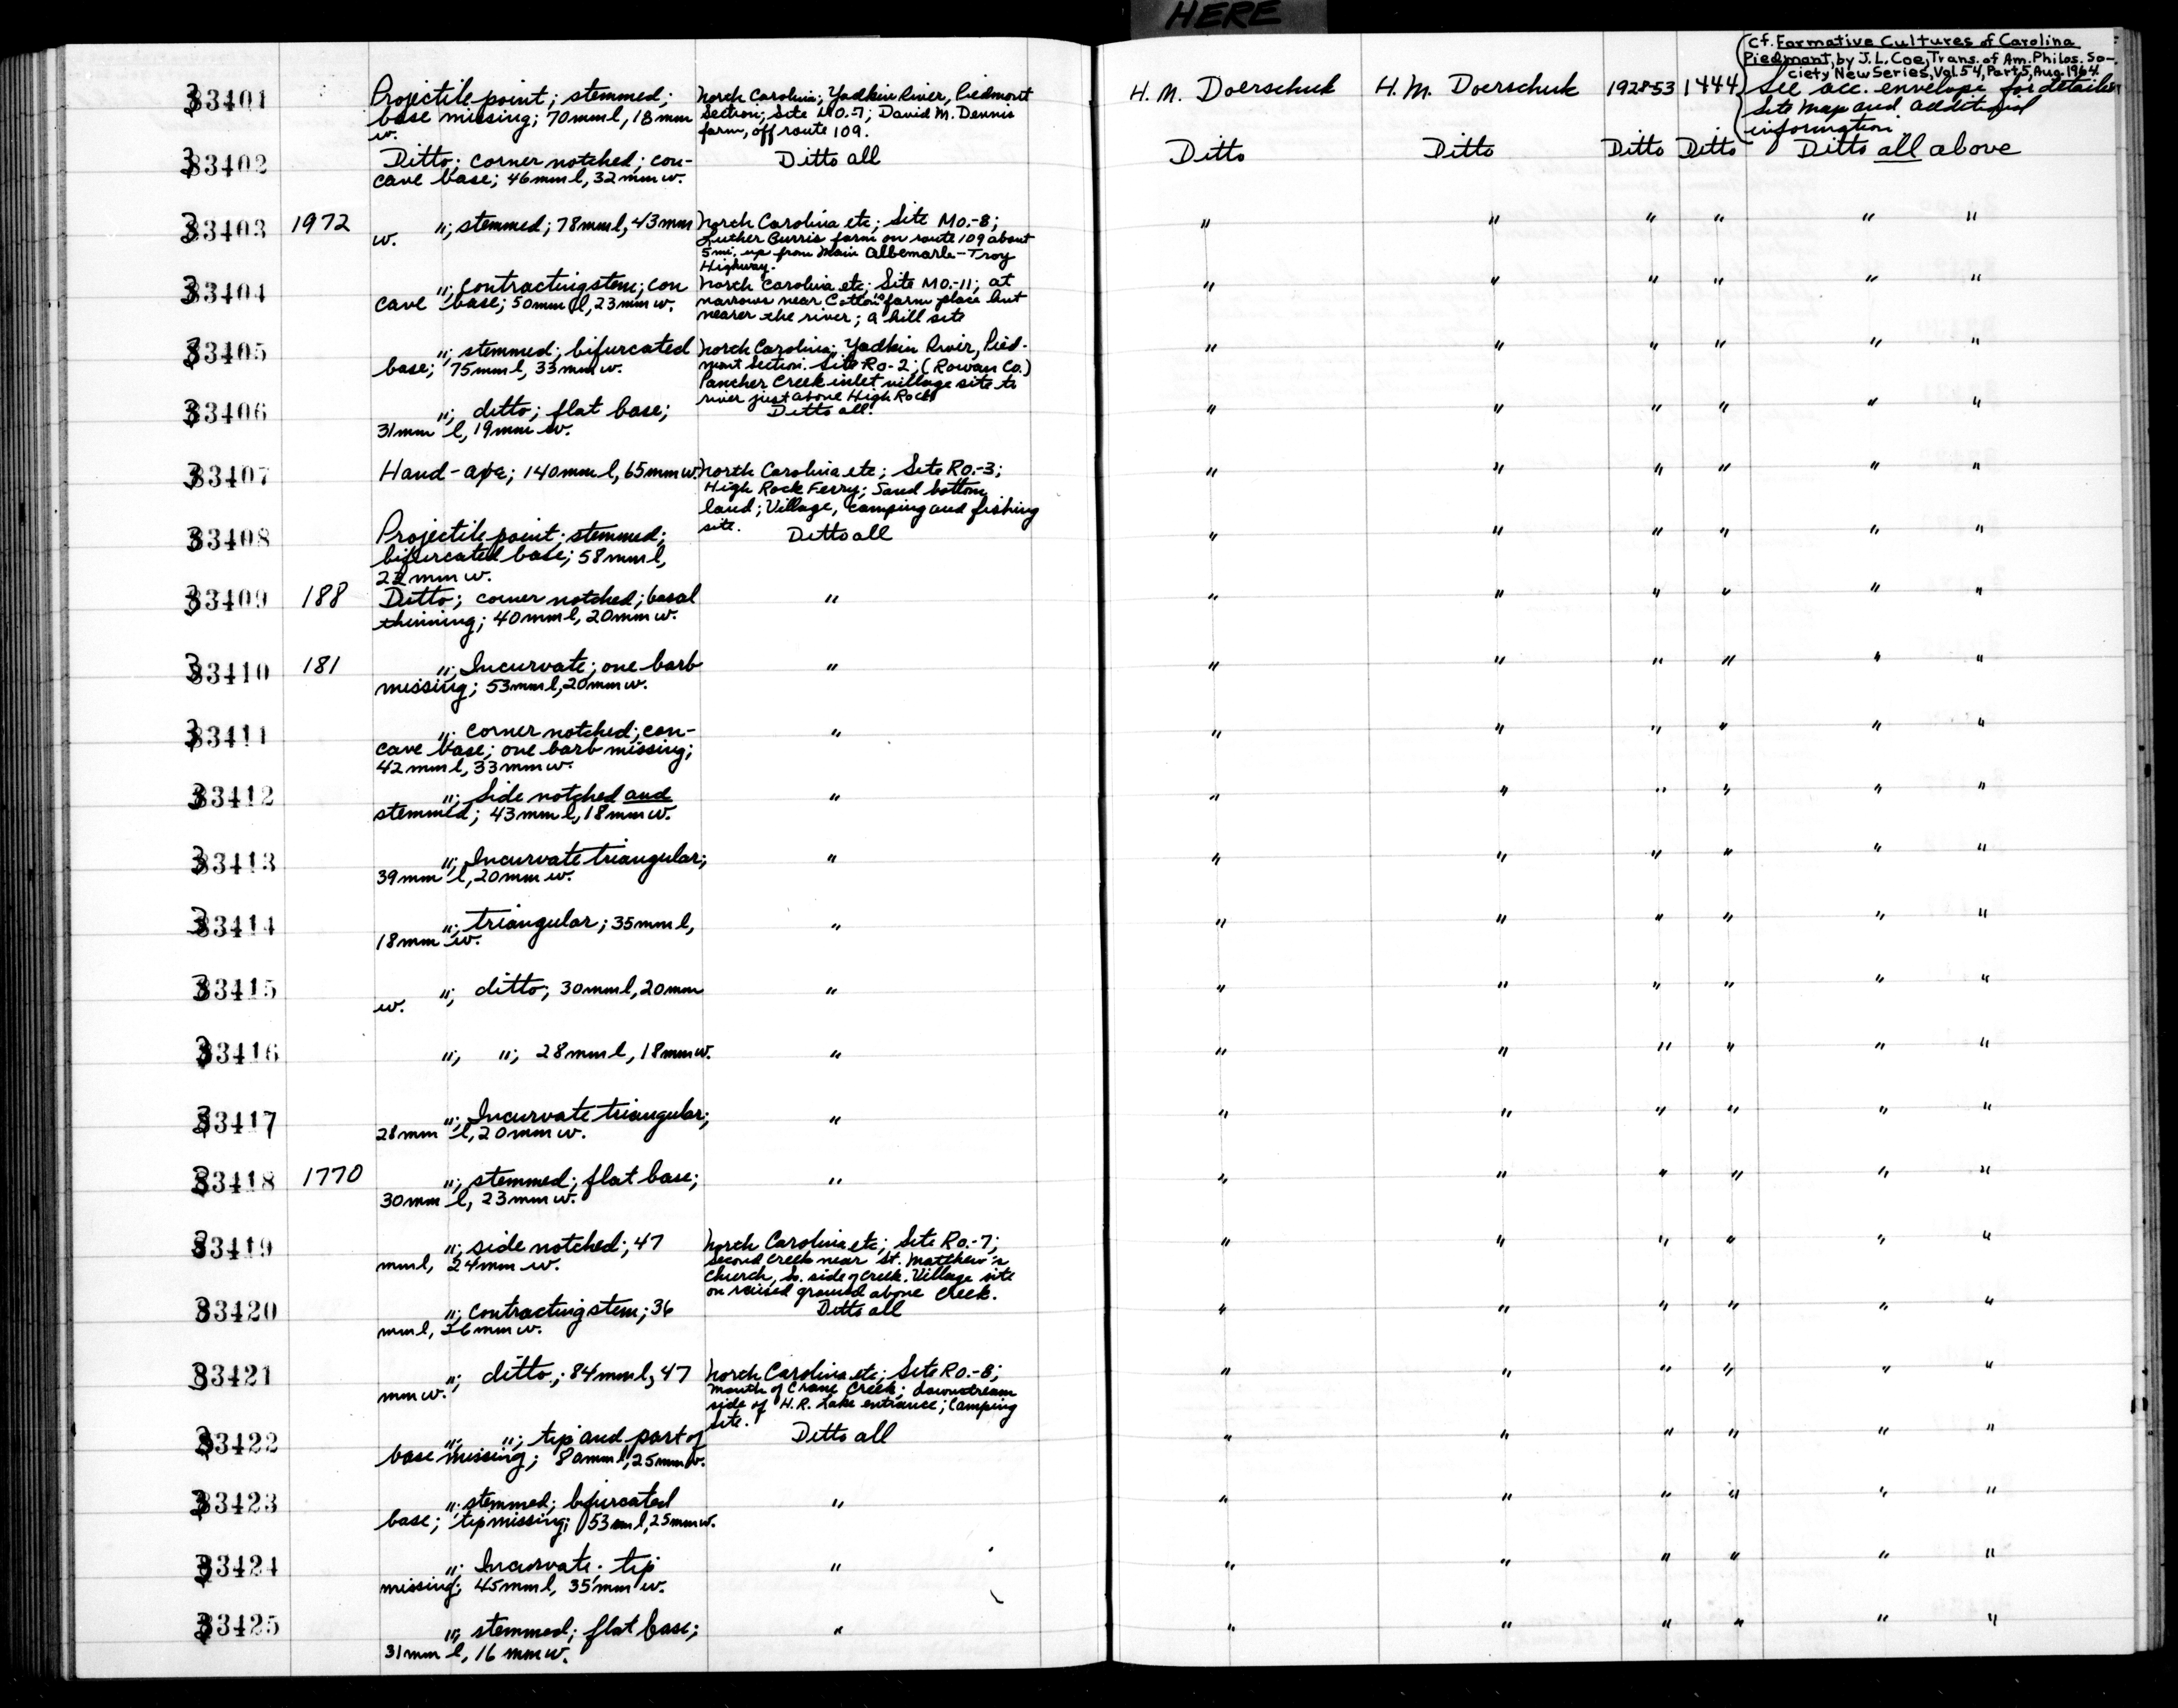 HERE
33401 Projectile point; stemmed; North Carolina; Yadkin River, Piedmont H. M. Doerschuk H. M. Doerschuk 1928-53 1444
base missing; 70mm l, 18mm Section; Site MO.-7; David M. Dennis
w. farm, off route 109.
cf. Formative Cultures of Carolina
Piedmont, by J. L. Coe, Trans. of Am. Philos. So-
ciety New Series, Vol. 54, Part 5, Aug. 1964.
See acc. envelope for details
Site map and additional
information.
33402 Ditto; corner notched; con- Ditto all Ditto Ditto Ditto Ditto Ditto all above
cave base; 46mm l, 32mm w.
33403 1972 "; stemmed; 78mm l, 43mm North Carolina etc; Site MO.-8; " " " " " "
w. Luther Burris farm on route 109 about
5 mi. up from Main Albemarle-Troy
Highway.
33404 "; contracting stem; con North Carolina etc; Site MO.-11; at " " " " " "
cave base; 50mm l, 23mm w. narrows near Cotton farm place but
nearer the river; a hill site
33405 "; stemmed; bifurcated North Carolina; Yadkin River, Pied- " " " " " "
base; 75mm l, 33mm w. mont Section. Site Ro-2; (Rowan Co.)
Pancher Creek inlet village site to
river just above High Rock
33406 "; ditto; flat base; Ditto all. " " " " " "
31mm l, 19mm w.
33407 Hand-axe; 140mm l, 65mm w. North Carolina etc; Site RO.-3; " " " " " "
High Rock Ferry; Sand bottom
land; Village, camping and fishing
site.
33408 Projectile point; stemmed; Ditto all " " " " " "
bifurcated base; 58mm l,
22mm w.
33409 188 Ditto; corner notched; basal " " " " " " "
thinning; 40mm l, 20mm w.
33410 181 "; Incurvate; one barb " " " " " " "
missing; 53mm l, 20mm w.
33411 "; corner notched; con- " " " " " " "
cave base; one barb missing;
42mm l, 33mm w.
33412 "; Side notched and " " " " " " "
stemmed; 43mm l, 18mm w.
33413 "; Incurvate triangular; " " " " " " "
39mm l, 20mm w.
33414 "; triangular; 35mm l, " " " " " " "
18mm w.
33415 "; ditto; 30mm l, 20mm " " " " " " "
w.
33416 "; "; 28mm l, 18mm w. " " " " " " "
33417 "; Incurvate triangular; " " " " " " "
28mm l, 20mm w.
33418 1770 "; stemmed; flat base; " " " " " " "
30mm l, 23mm w.
33419 "; side notched; 47 North Carolina etc; Site RO.-7; " " " " " "
mm l, 24mm w. Second Creek near St. Matthew's
Church, So. side of Creek. Village site
on raised ground above Creek.
33420 "; Contracting stem; 36 Ditto all " " " " " "
mm l, 26mm w.
33421 "; ditto; 84mm l, 47 North Carolina etc; Site RO.-8; " " " " " "
mm w. Mouth of Crane Creek; downstream
side of H.R. Lake entrance; Camping
site.
33422 "; "; tip and part of Ditto all " " " " " "
base missing; 80mm l, 25mm w.
33423 "; stemmed; bifurcated " " " " " " "
base; tip missing; 53mm l, 25mm w.
33424 "; Incurvate; tip " " " " " " "
missing; 45mm l, 35mm w.
33425 "; stemmed; flat base; " " " " " " "
31mm l, 16mm w.